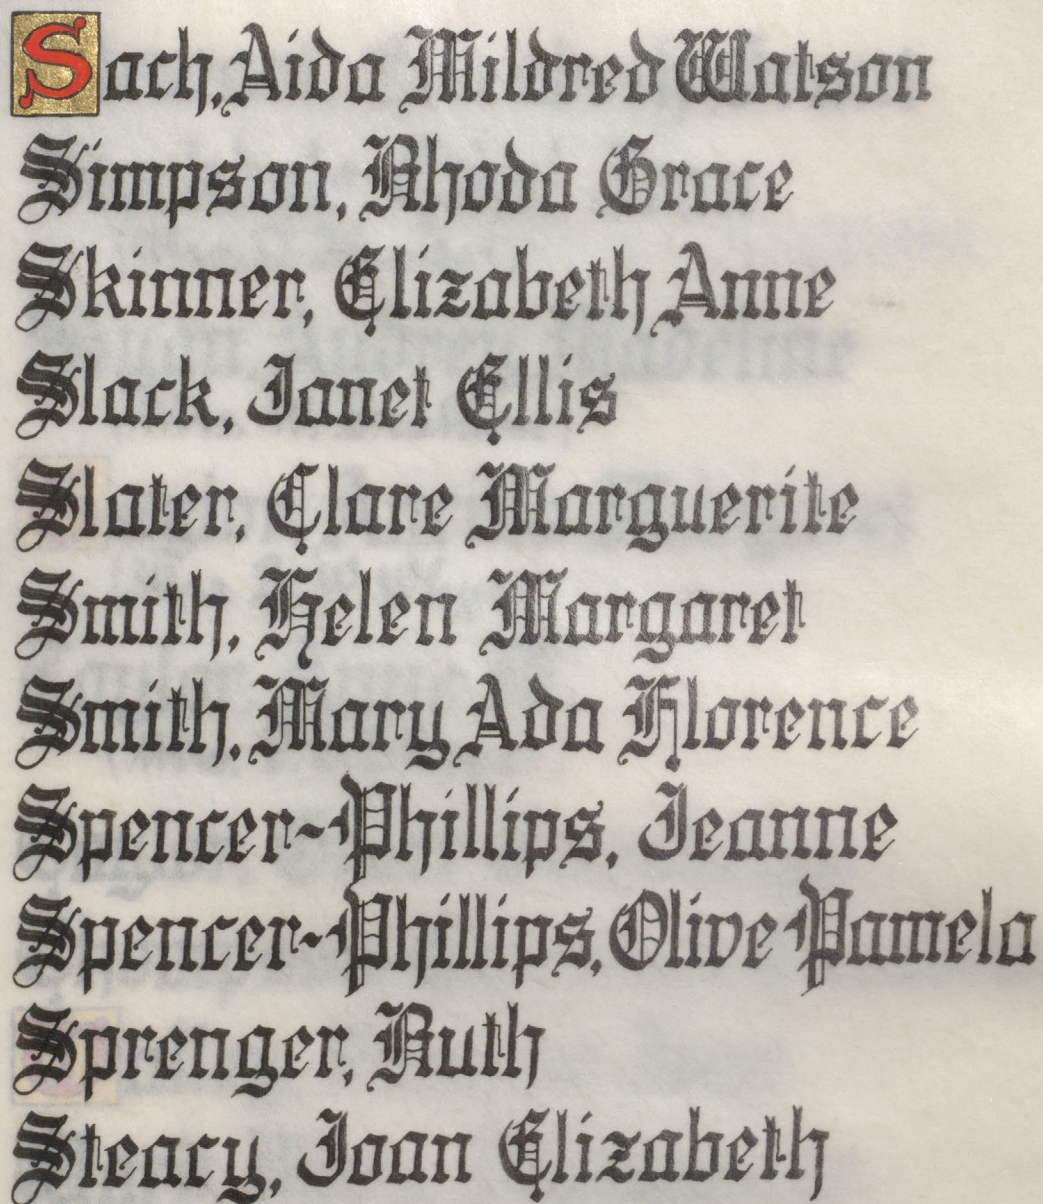 Sach, Aida Mildred Watson
Simpson, Rhoda Grace
Skinner, Elizabeth Anne
Slack, Janet Ellis
Slater, Clare Marguerite
Smith, Helen Margaret
Smith, Mary Ada Florence
Spencer-Phillips, Jeanne
Spencer-Phillips, Olive Pamela
Sprenger, Ruth
Steacy, Joan Elizabeth